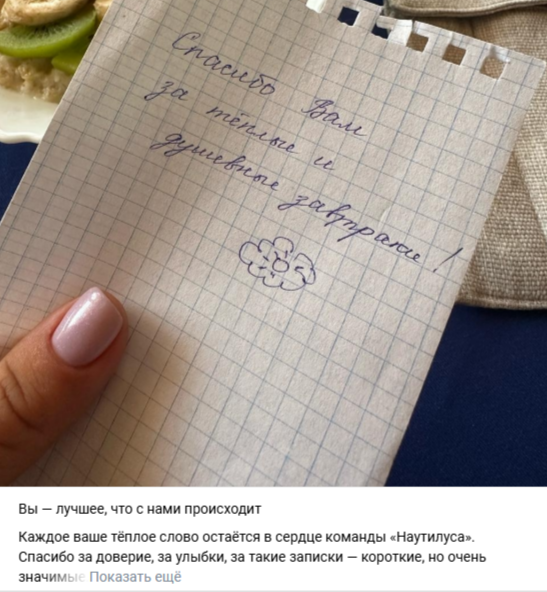 Спасибо Вам
за тёплые и
душевные завтраки!
Вы — лучшее, что с нами происходит
Каждое ваше тёплое слово остаётся в сердце команды «Наутилуса».
Спасибо за доверие, за улыбки, за такие записки — короткие, но очень
значимые Показать ещё